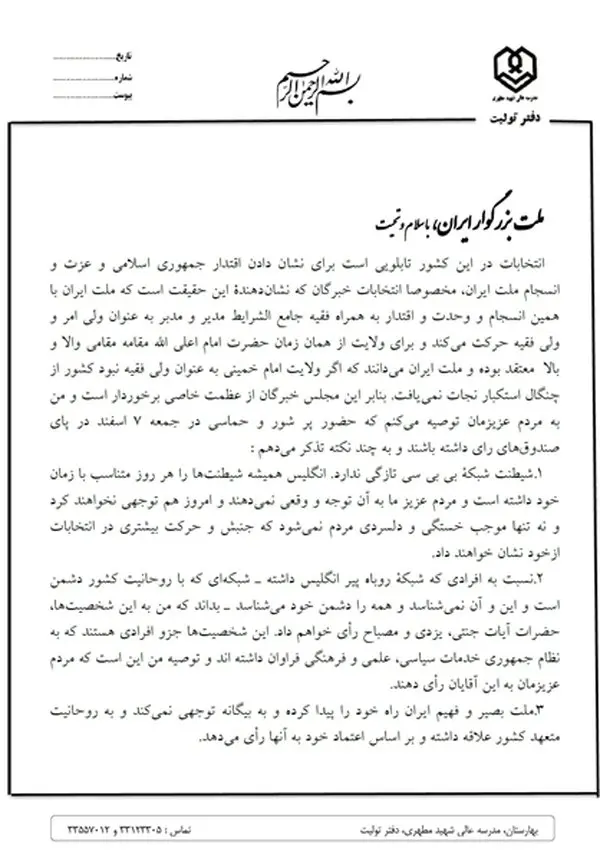 تاریخ
شماره
پیوست
بسم الله الرحمن الرحیم
مدرسه عالی شهید مطهری
دفتر تولیت
ملت بزرگوار ایران، با سلام و تحیت
انتخابات در این کشور تابلویی است برای نشان دادن اقتدار جمهوری اسلامی و عزت و
انسجام ملت ایران، مخصوصا انتخابات خبرگان که نشان‌دهندهٔ این حقیقت است که ملت ایران با
همین انسجام و وحدت و اقتدار به همراه فقیه جامع الشرایط مدیر و مدبر به عنوان ولی امر و
ولی فقیه حرکت می‌کند و برای ولایت از همان زمان حضرت امام اعلی الله مقامه مقامی والا و
بالا معتقد بوده و ملت ایران می‌دانند که اگر ولایت امام خمینی به عنوان ولی فقیه نبود کشور از
چنگال استکبار نجات نمی‌یافت. بنابر این مجلس خبرگان از عظمت خاصی برخوردار است و من
به مردم عزیزمان توصیه می‌کنم که حضور پر شور و حماسی در جمعه ۷ اسفند در پای
صندوق‌های رای داشته باشند و به چند نکته تذکر می‌دهم :
۱.شیطنت شبکهٔ بی بی سی تازگی ندارد. انگلیس همیشه شیطنت‌ها را هر روز متناسب با زمان
خود داشته است و مردم عزیز ما به آن توجه و وقعی نمی‌دهند و امروز هم توجهی نخواهند کرد
و نه تنها موجب خستگی و دلسردی مردم نمی‌شود که جنبش و حرکت بیشتری در انتخابات
ازخود نشان خواهند داد.
۲.نسبت به افرادی که شبکهٔ روباه پیر انگلیس داشته ـ شبکه‌ای که با روحانیت کشور دشمن
است و این و آن نمی‌شناسد و همه را دشمن خود می‌شناسد ـ بداند که من به این شخصیت‌ها،
حضرات آیات جنتی، یزدی و مصباح رأی خواهم داد. این شخصیت‌ها جزو افرادی هستند که به
نظام جمهوری خدمات سیاسی، علمی و فرهنگی فراوان داشته اند و توصیه من این است که مردم
عزیزمان به این آقایان رأی دهند.
۳.ملت بصیر و فهیم ایران راه خود را پیدا کرده و به بیگانه توجهی نمی‌کند و به روحانیت
متعهد کشور علاقه داشته و بر اساس اعتماد خود به آنها رأی می‌دهد.
بهارستان، مدرسه عالی شهید مطهری، دفتر تولیت
تماس : ۳۳۱۲۳۳۰۵ و ۳۳۵۵۷۰۱۲